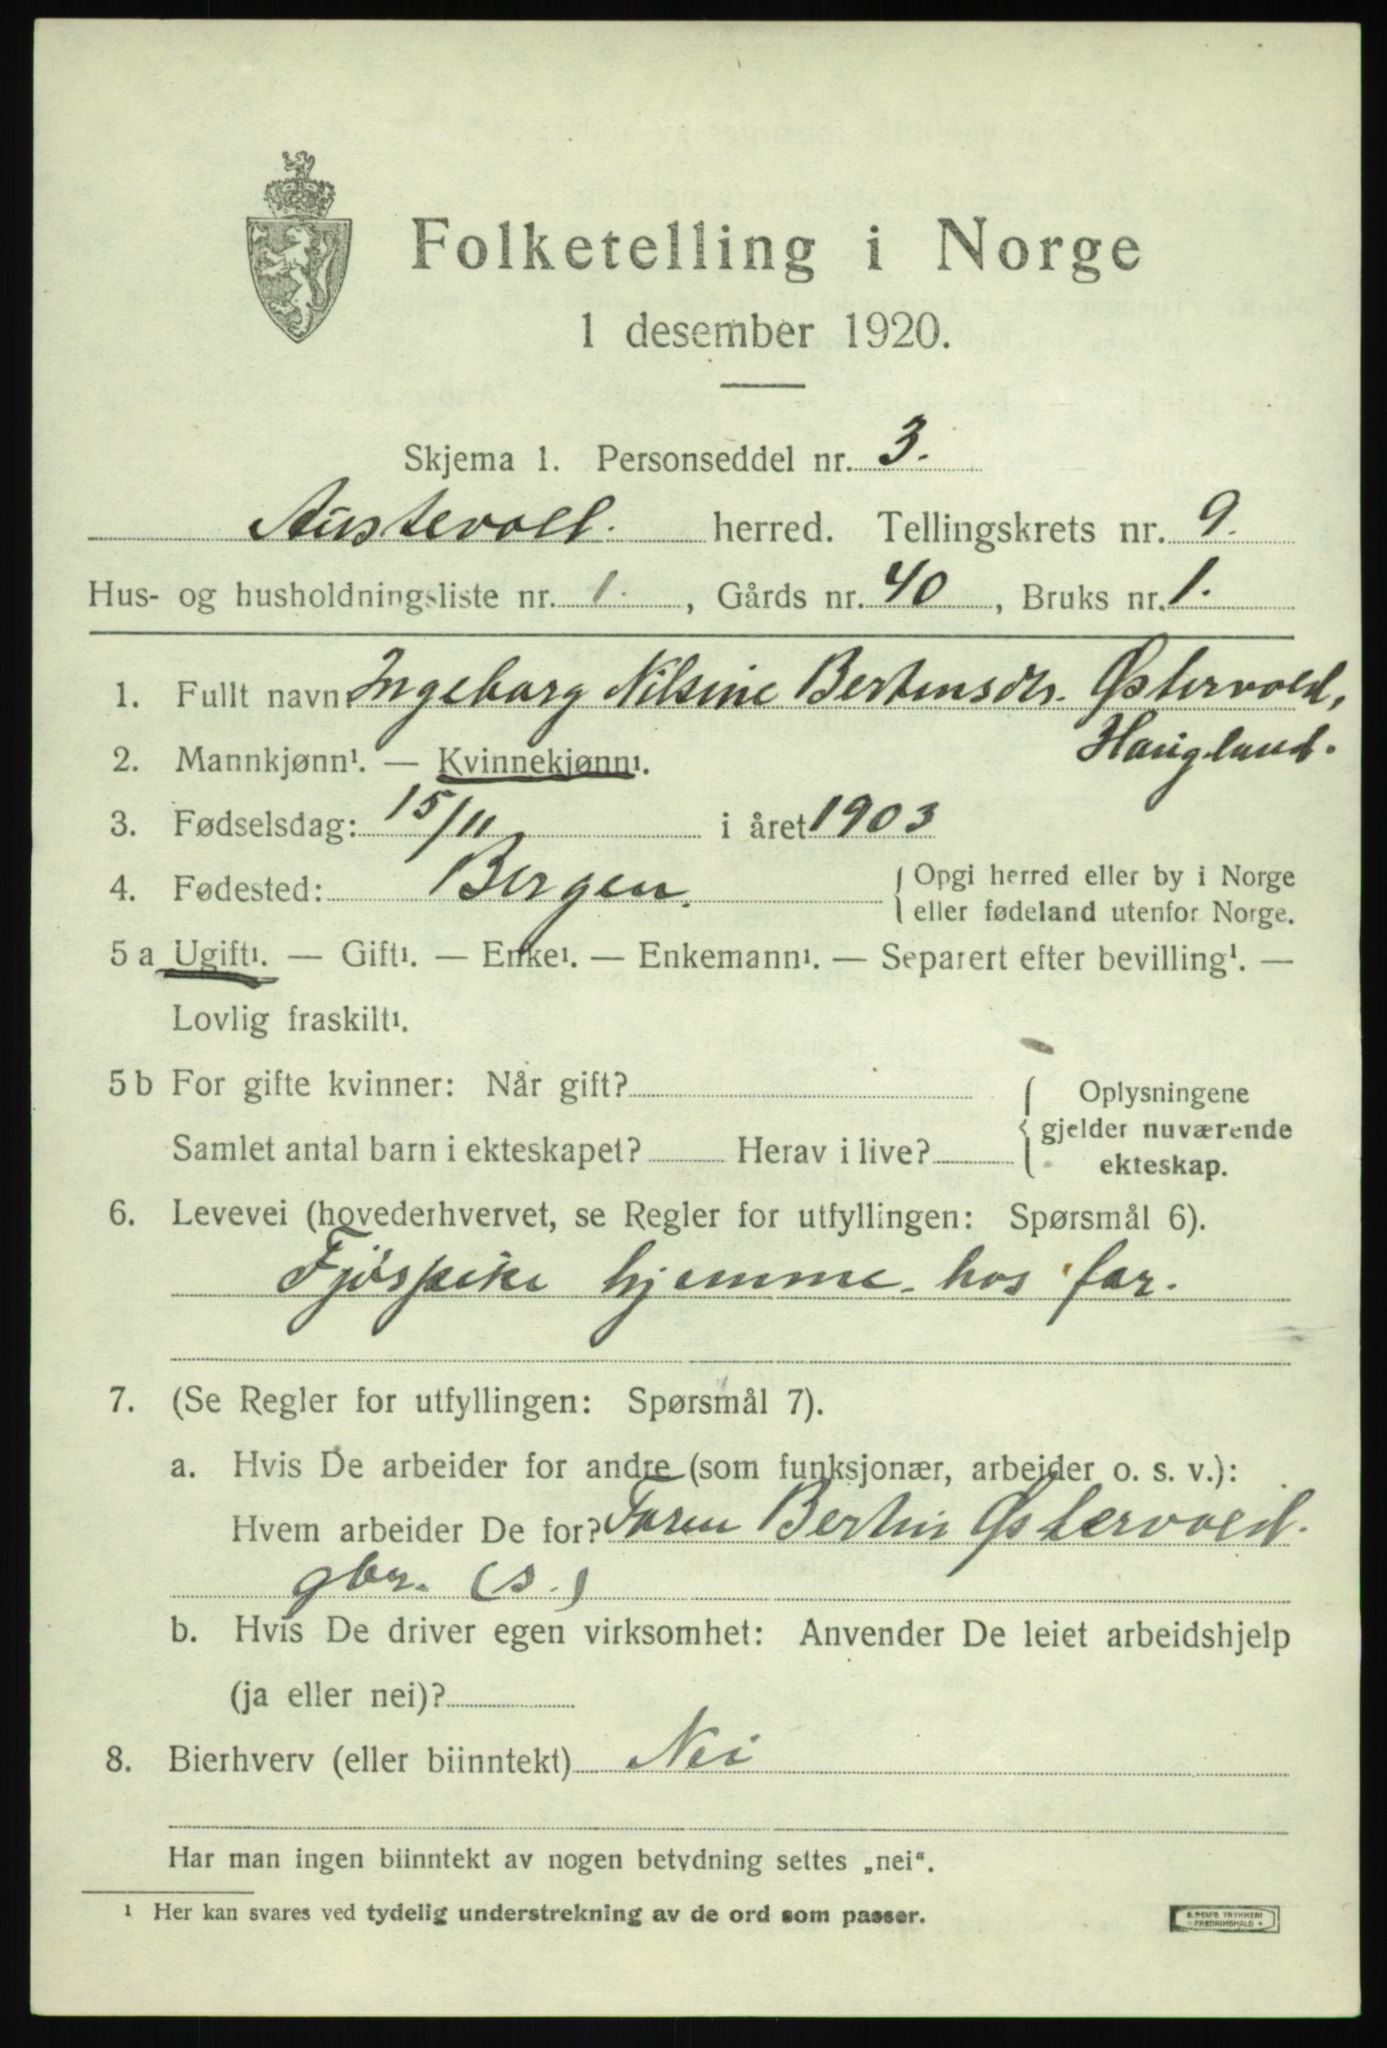 Folketelling i Norge
1 desember 1920.
Skjema 1. Personseddel nr. 3.
Austevoll. herred. Tellingskrets nr. 9.
Hus- og husholdningsliste nr. 1. , Gårds nr. 40 , Bruks nr. 1.
1. Fullt navn: Ingeborg Nilsine Bertinsdtr. Østervold,
Haugland.
2. Mannkjønn¹. — Kvinnekjønn¹.
3. Fødselsdag: 15/11 i året 1903
4. Fødested: Bergen. { Opgi herred eller by i Norge
eller fødeland utenfor Norge.
5 a Ugift¹. — Gift¹. — Enke¹. — Enkemann¹. — Separert efter bevilling¹. —
Lovlig fraskilt¹.
5 b For gifte kvinner: Når gift? { Oplysningene
gjelder nuværende
Samlet antal barn i ekteskapet? Herav i live?
ekteskap.
6. Levevei (hovederhvervet, se Regler for utfyllingen: Spørsmål 6).
Fjøspike hjemme hos far.
7. (Se Regler for utfyllingen: Spørsmål 7).
a. Hvis De arbeider for andre (som funksjonær, arbeider o. s. v.):
Hvem arbeider De for? Faren Bertin Østervold.
gbr. (s.)
b. Hvis De driver egen virksomhet: Anvender De leiet arbeidshjelp
(ja eller nei)?
8. Bierhverv (eller biinntekt) Nei
Har man ingen biinntekt av nogen betydning settes „nei“.
¹ Her kan svares ved tydelig understrekning av de ord som passer.
TRYKKERI
FREDRIKSHALD